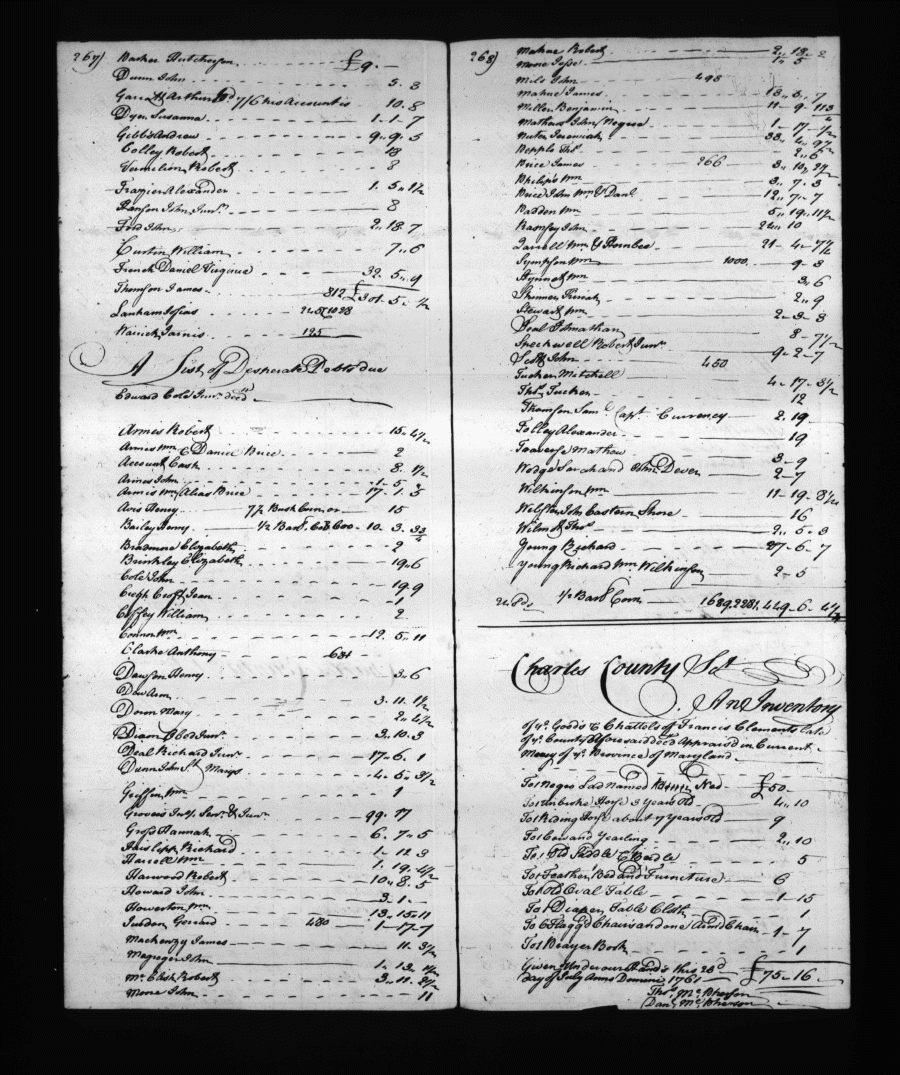 267)
Barker Hutcheson £9. —
Dunn John 5. 8
Garrett Arthur 7/6 his Account is 10. 8
Dyer Susanna 1. 1. 7
Gibbs Andrew 9. 9. 5
Colley Robert 18
Vermelion Robert 8
Frazier Alexander 1. 5. 1½
Hanson John Junr. 8
Ford John 2. 18. 7
Curtin William 7. 6
French Daniel Virginia 32. 5. 9
Thomson James 812 £301. 5. ½
Lanham Josias
Warrick Jarvis 125
A List of Desperate Debts due
Edward Cole Junr. decd.
Armes Robert 15. 4½
Armis Wm. & Daniel Brice 2
Account Cash 8. ½
Armes John 1. 5. 3
Armis Wm. Alias Brice 17. 1. 3
Avis Henry 7½ Bush Corn, or 15
Bailey Henry ½ Barl. 10. 3. 3¾
Brazmore Elizabeth 2
Brinkley Elizabeth 19. 6
Cole John
Cregh Croft Jean 19. 9
Coffey William 2
Connor Wm. 12. 5. 11
Clarke Anthony 681
Dawson Henry 3. 6
Dow Ann 3. 11. 1½
Doren Mary 2. 4½
Dixon Obed Junr. 3. 10. 3
Deal Richard Junr. 17. 6. 1
Dunn John St. Marys 4. 5. 3½
Griffin Wm. 1
Grovers Senr. & Junr. 99. 17
Gross Hannah 6. 7. 5
Hairslepp Richard 1. 12. 3
Harrell Wm. 1. 19. 4½
Harwood Robert 10. 8. 5
Howard John 3. 1. —
Howerton Wm. 13. 15. 11
Juddon Gerrard 480 1. 17. 7
Mackenzy James 11. 3½
Magregor John 1. 13. ½
Mc. Clish Robert 3. 11. 2½
Moore John 11
268)
Mahae Robert 2. 18. 2
Moore Jesse 5
Mils John 498
Mahue James 18. 5. 7
Miller Benjamin 11. 9. 11¾
Mathews John Negroe 1. 17. ½
Nuter Jeremiah 38. 4. 9½
Nepple Thos. 2. 6
Price James 266 3. 10. 2½
Philips Wm. 3. 7. 3
Price John Wm. & Danl. 12. 7. 7
Radden Wm. 5. 19. 11½
Ramsey John 24. 10
Sarrell Wm. & Thombee 21. 4. 7½
Sympson Wm. 1000 9. 8
Stynnat Wm. 3. 6
Skinner Frincah 2. 9
Stewart Wm. 2. 3. 8
Seal Johnathan
Speckwell Robert Junr. 8. 7½
Scott John 9. 2. 7
Tucker Mitchell 450
Thos. Tucker 4. 17. 8½
Thomson Saml. Capt Currency 12
Tolley Alexander 2. 19
Traverse Mathew 19
Wedge Sarch and Jno. Dever 3. 9
Wilkinson Wm. 2. 7
Welster John Eastern Shore 11. 19. 8½
Wilmot Thos. 16
Young Richard 2. 5. 3
Young Richard Wm. Wilkinson 27. 6. 7
2. 5
½ Barl. Corn 1689. 2281. 449. 6. 4¼
Charles County Sct.
An Inventory
of ye. Goods & Chattels of Francis Clements late
of ye. County Aforesaid decd. Appraisd in Current
Money of ye. Province of Maryland
To 1 Negro Lad named Ned £50
To 1 Unbroke Horse 3 Years Old 4. 10
To 1 Riding Horse about 7 Years old 9
To 1 Cow and Yearling 2. 10
To 1 Old Saddle & Bridle 5
To 1 Feather Bed and Furniture 6
To 1 old Oval Table 1. 15
To 1 Diaper Table Cloth 1
To 6 Flagg'd Chairs and one Arm'd Chair 1. 7
To 1 Prayer Book 1
Given Under our Hands this 28d. £75. 16
day of July Anno Domini 1761
Thos. Mc. Pherson
Danl. Mc. Pherson